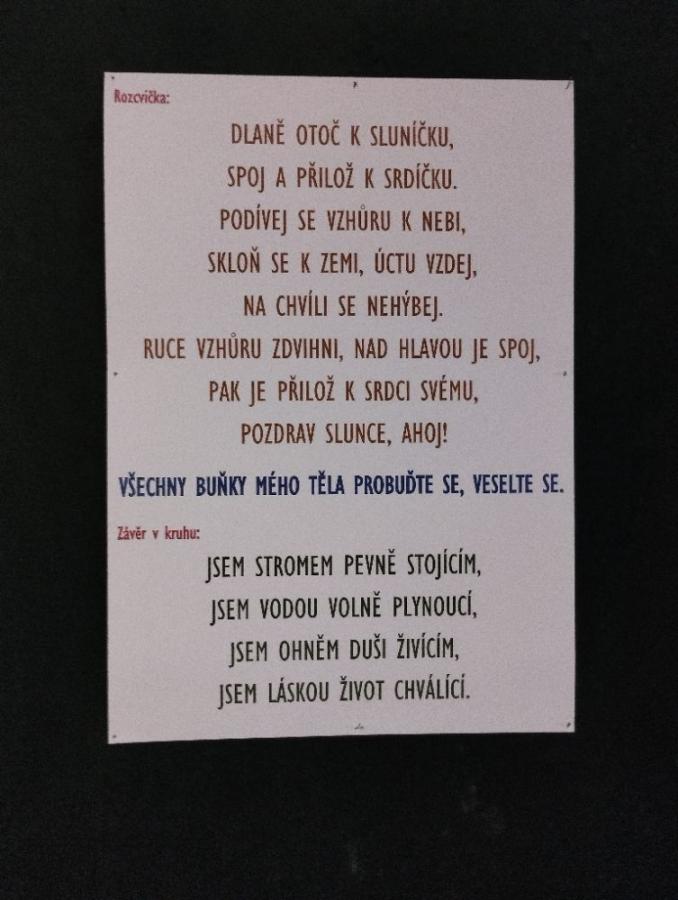 Rozcvička:
DLANĚ OTOČ K SLUNÍČKU,
SPOJ A PŘILOŽ K SRDÍČKU.
PODÍVEJ SE VZHŮRU K NEBI,
SKLOŇ SE K ZEMI, ÚCTU VZDEJ,
NA CHVÍLI SE NEHÝBEJ.
RUCE VZHŮRU ZDVIHNI, NAD HLAVOU JE SPOJ,
PAK JE PŘILOŽ K SRDCI SVÉMU,
POZDRAV SLUNCE, AHOJ!
VŠECHNY BUŇKY MÉHO TĚLA PROBUĎTE SE, VESELTE SE.
Závěr v kruhu:
JSEM STROMEM PEVNĚ STOJÍCÍM,
JSEM VODOU VOLNĚ PLYNOUCÍ,
JSEM OHNĚM DUŠI ŽIVÍCÍM,
JSEM LÁSKOU ŽIVOT CHVÁLÍCÍ.